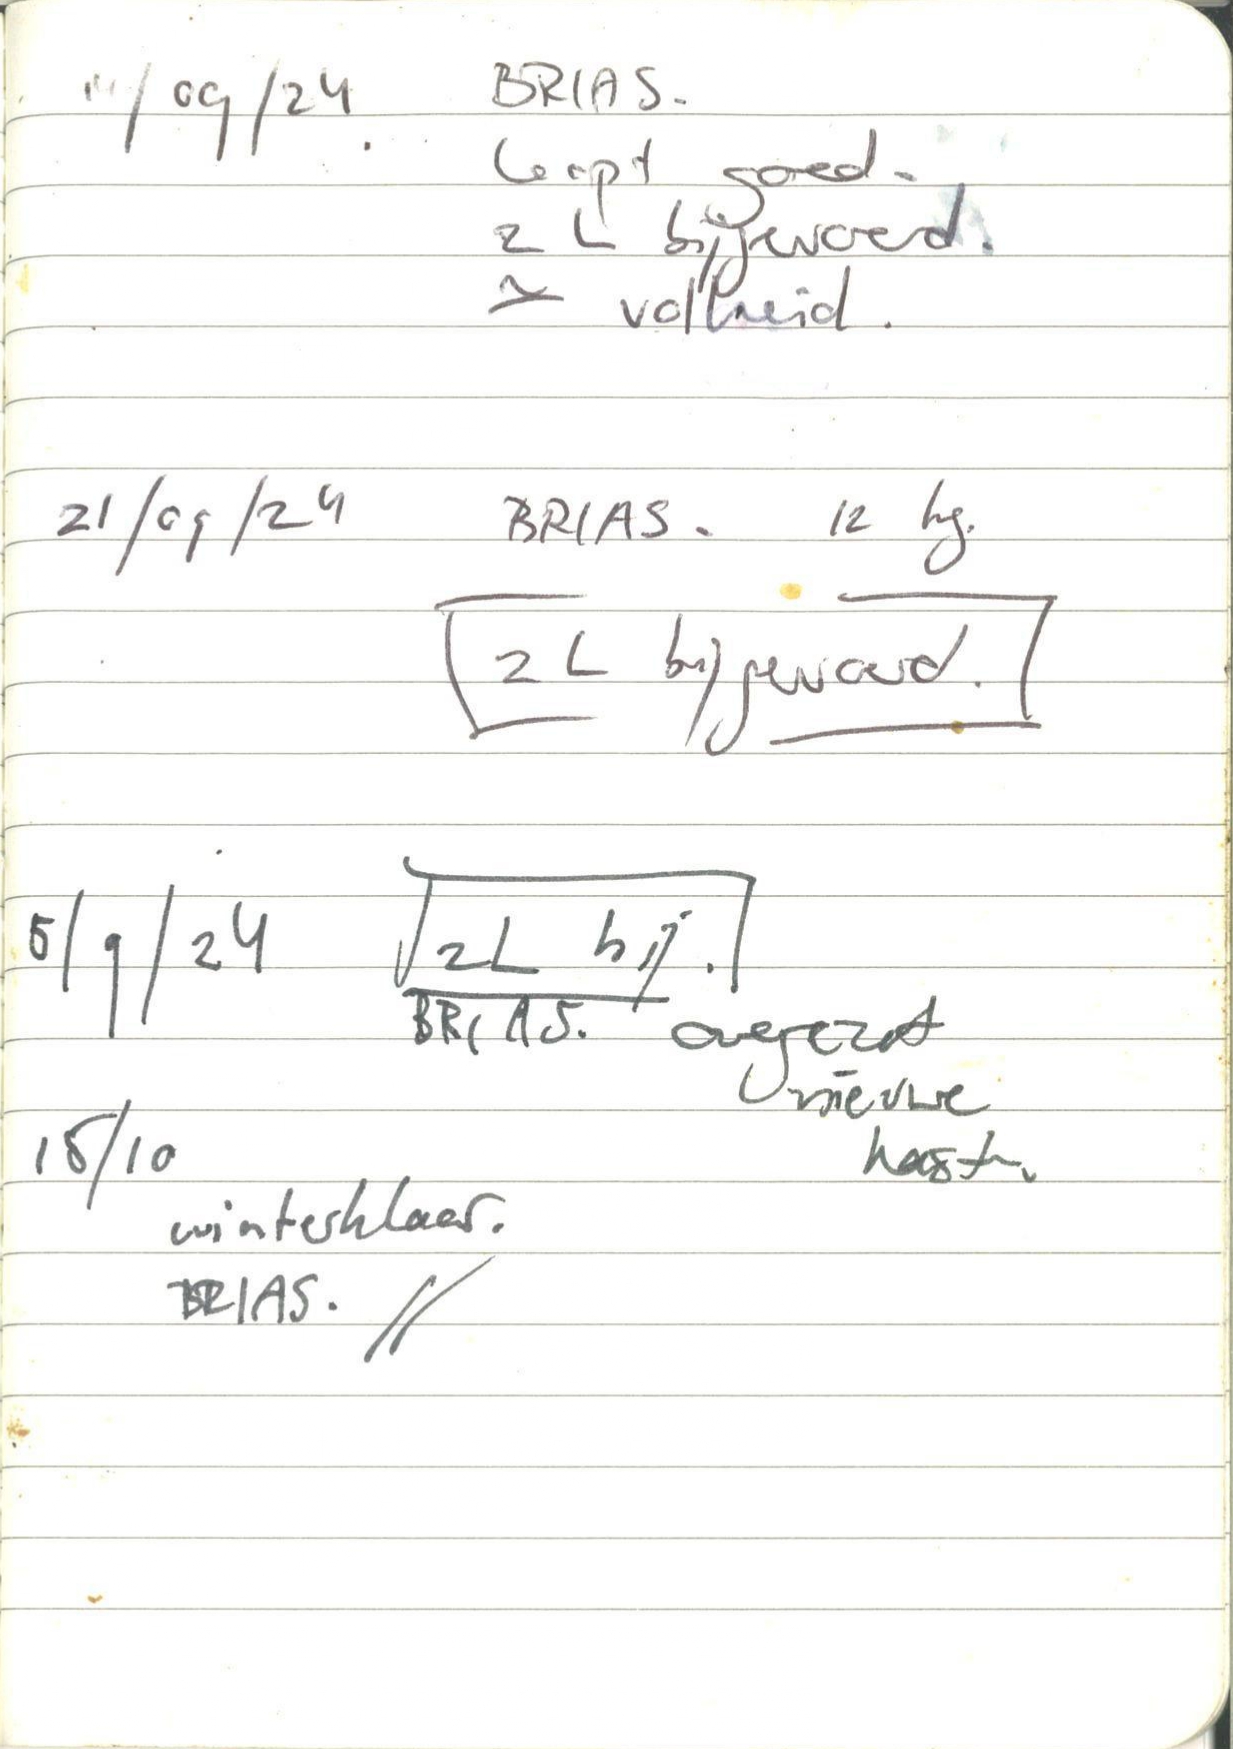 11/09/24 BRIAS.
Loopt goed.
2 L bijgevoerd.
≃ volkneid.
21/09/24 BRIAS. 12 kg.
2 L bijgevoerd.
5/9/24 2L bij.
BRIAS. overgezet
nieuwe
kast.
15/10
winterklaar.
BRIAS. //